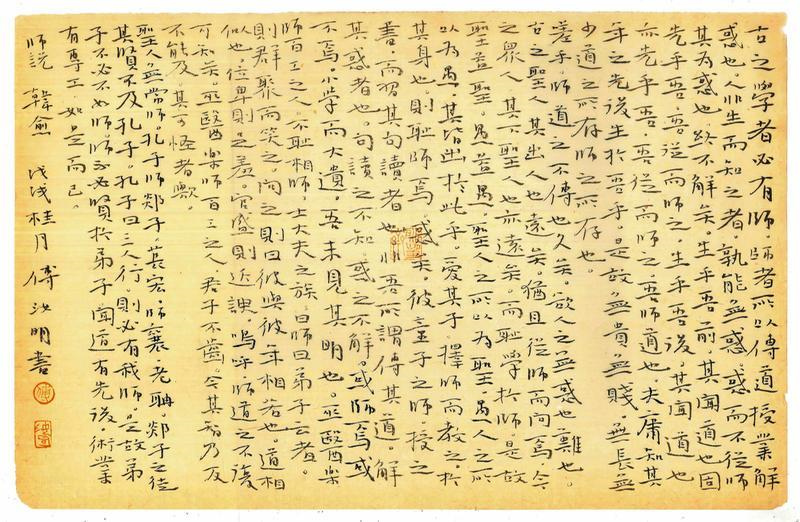 古之學者必有師師者所以傳道授業解
惑也。人非生而知之者,孰能無惑惑而不從師
其為惑也終不解矣。生乎吾前,其聞道也固
先乎吾吾從而師之。生乎吾後,其聞道也
亦先乎吾,吾從而師之吾師道也夫庸知其
年之先後生於吾乎。是故無貴無賤,無長無
少道之所存師之所存也。
嗟乎。師道之不傳也久矣。欲人之無惑也難也。
古之聖人其出人也遠矣。猶且從師而問焉,今
之眾人其下聖人也亦遠矣。而恥學於師。是故
聖益聖。愚益愚。聖人之所以為聖愚人之所
以為愚,其皆出於此乎。愛其子擇師而教之。於
其身也。則恥師焉惑矣。彼童子之師,授之
書。而習其句讀者也,非吾所謂傳其道。解
其惑者也。句讀之不知。惑之不解。或師焉或
不焉。小學而大遺。吾未見其明也。巫醫樂
師百工之人,不恥相師,士大夫之族,曰師曰弟子云者。
則群聚而笑之。問之則曰彼與彼年相若也。道相
似也,位卑則足羞。官盛則近諛。嗚呼師道之不復
可知矣。巫醫樂師百工之人君子不齒。今其智乃反
不能及,其可怪者歟。
聖人無常師。孔子師郯子。萇宏。師襄老聃。郯子之徒
其賢不及孔子。孔子曰三人行。則必有我師。是故弟
子不必不如師師不必賢於弟子聞道有先後術業
有專工如是而已。
師說 韓愈 戊戌桂月 傅汝明書